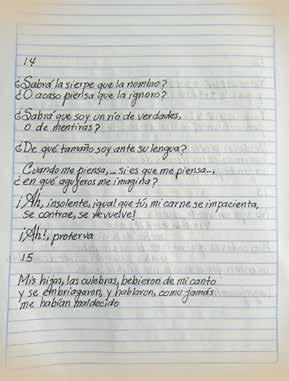 14
¿Sabrá la sierpe que la nombro?
¿O acaso piensa que la ignoro?
¿Sabrá que soy un río de verdades,
o de mentiras?
¿De qué tamaño soy ante su lengua?
Cuando me piensa, _ si es que me piensa _,
¿en qué agujeros me imagina?
¡Ah, insolente, igual que tú, mi carne se impacienta,
se contrae, se devuelve!
¡Ah!, proterva
15
Mis hijas, las culebras, bebieron de mi canto
y se embriagaron, y hablaron, como jamás
me habían maldecido